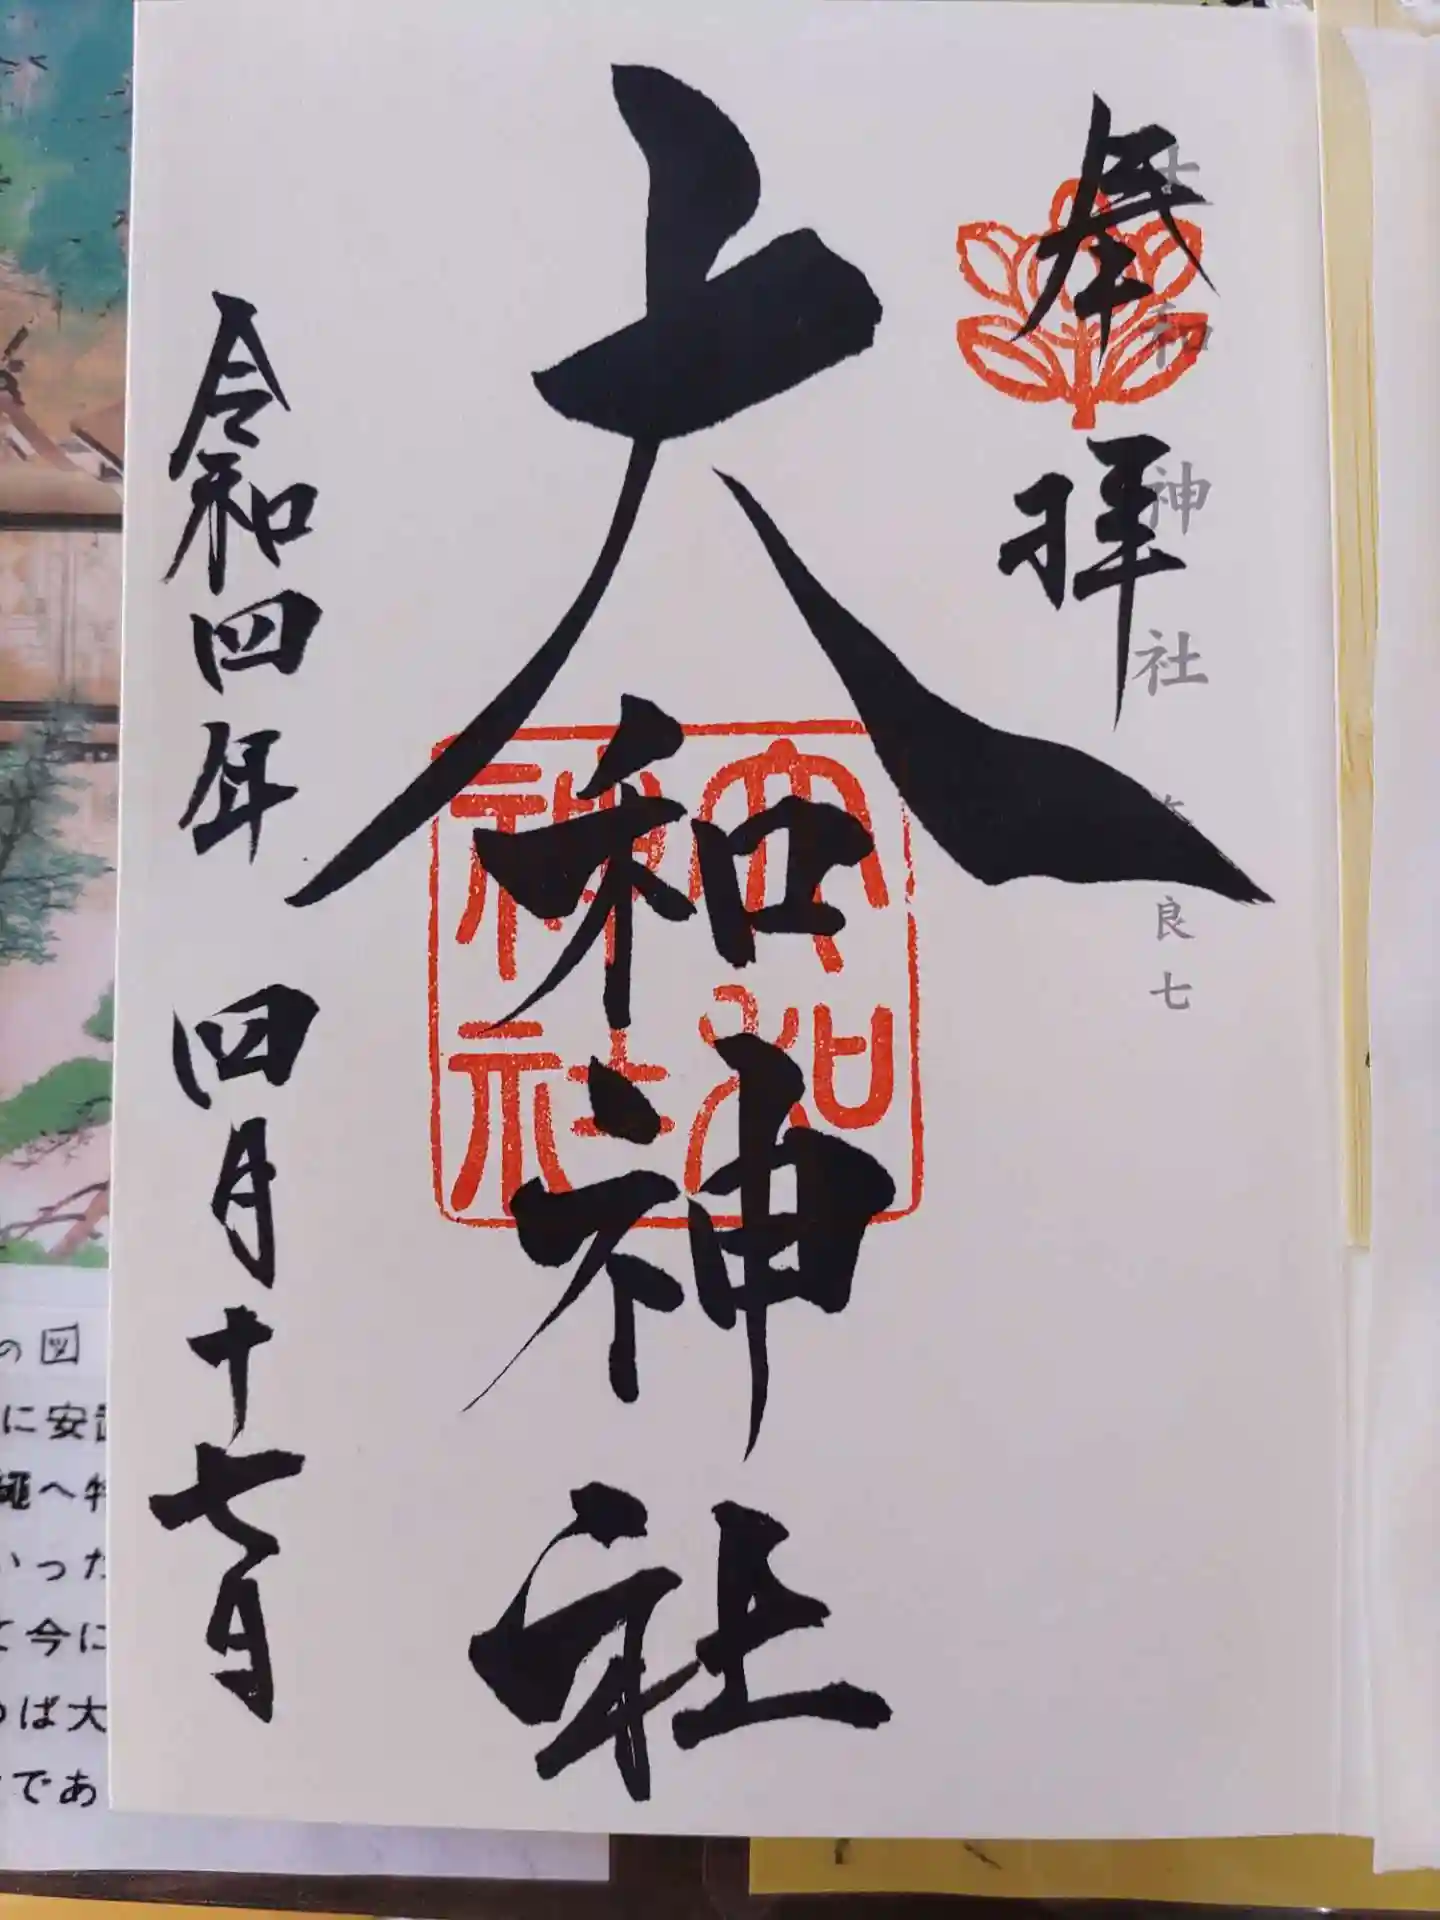 奉拝
大和神社
大和神社
令和四年 四月十七日
大和神社
良七
の図
に安
縄へ特
いった
て今に
ば大
であ